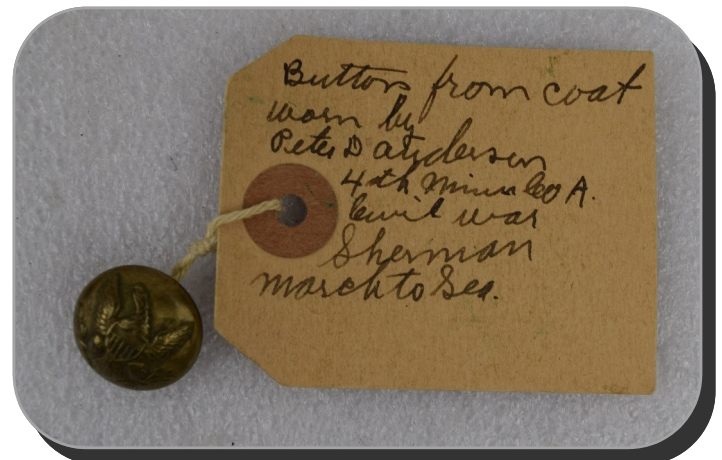 Button from coat
worn by
Peter D Anderson
4th Minn Co A.
Civil war
Sherman
march to Sea.